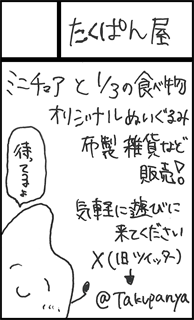 たくぱん屋
ミニチュアと1/3の食べ物
オリジナルぬいぐるみ
布製雑貨など
販売!
気軽に遊びに
来てください
X(旧ツイッター)
↓
@Takupanya
待ってますよ